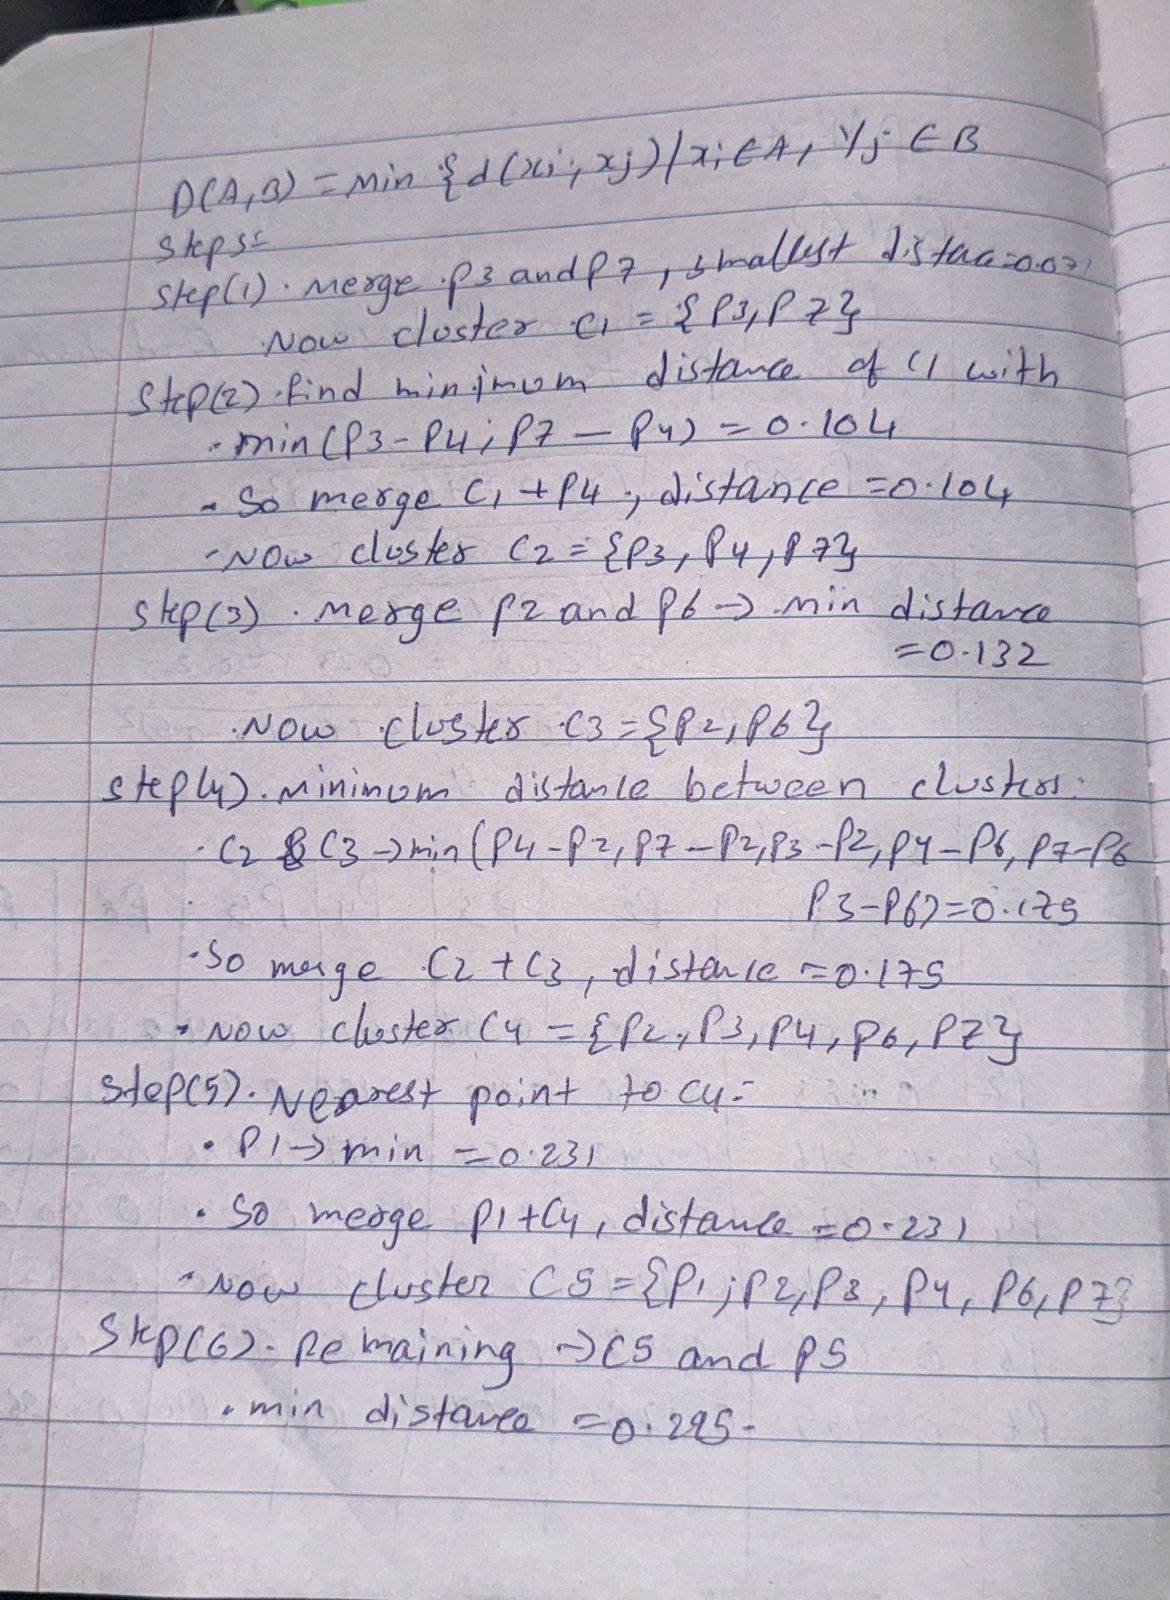 D(A,B) = min {d(xi, xj) / xi ∈ A, Yj ∈ B
Steps:
Step(1). Merge P3 and P7, smallest distace=0.071
Now cluster C1 = {P3, P7}
Step(2). find minimum distance of C1 with
· min(P3-P4; P7 - P4) = 0.104
- So merge C1 + P4, distance = 0.104
- Now cluster C2 = {P3, P4, P7}
Step(3). merge P2 and P6 → min distance
= 0.132
· Now cluster C3 = {P2, P6}
Step(4). minimum distance between clusters:
· C2 & C3 → min (P4-P2, P7-P2, P3-P2, P4-P6, P7-P6
P3-P6) = 0.175
· So merge C2 + C3, distance = 0.175
· Now cluster C4 = {P2, P3, P4, P6, P7}
Step(5). Nearest point to C4:
· P1 → min = 0.231
· So merge P1+C4, distance = 0.231
· Now cluster C5 = {P1; P2, P3, P4, P6, P7}
Step(6). Remaining → C5 and P5
· min distance = 0.295-